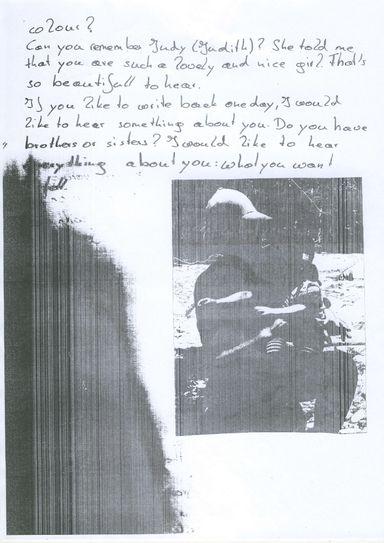 colour?
Can you remember Judy (Judith)? She told me
that you are such a lovely and nice girl. That's
so beautifull to hear.
If you like to write back oneday, I would
like to hear something about you. Do you have
brothers or sisters? I would like to hear
everything about you: what you want
tell